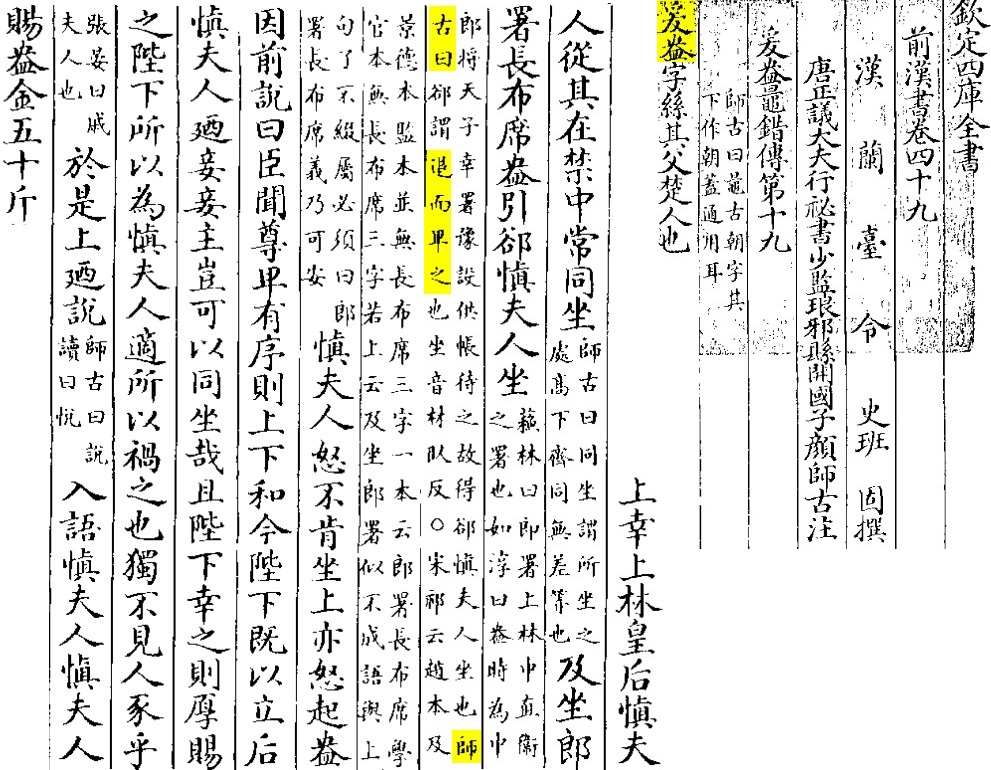 欽定四庫全書
前漢書卷四十九
漢蘭臺令史班固撰
唐正議大夫行祕書少監琅邪縣開國子顏師古注
爰盎鼂錯傳第十九
師古曰鼂古朝字其
下作朝蓋通用耳
爰盎字絲其父楚人也
上幸上林皇后慎夫
人從其在禁中常同坐
師古曰同坐謂所坐之
處高下齊同無差等也
及坐郎
署長布席盎引郤慎夫人坐
蘇林曰郎署上林中直衛
之署也如淳曰盎時為中
郎将天子幸署豫設供帳待之故得郤慎夫人坐也師
古曰郤謂退而卑之也坐音材臥反○宋祁云趙本及
景德本監本並無長布席三字一本云郎署長布席學
官本無長布席三字若上云及坐郎署似不成語與上
句了不綴屬必須曰郎
署長布席義乃可安
慎夫人怒不肯坐上亦怒起盎
因前說曰臣聞尊卑有序則上下和今陛下既以立后
慎夫人廼妾妾主豈可以同坐哉且陛下幸之則厚賜
之陛下所以為慎夫人適所以禍之也獨不見人豕乎
張晏曰戚
夫人也
於是上廼說
師古曰說
讀曰悅
入語慎夫人慎夫人
賜盎金五十斤